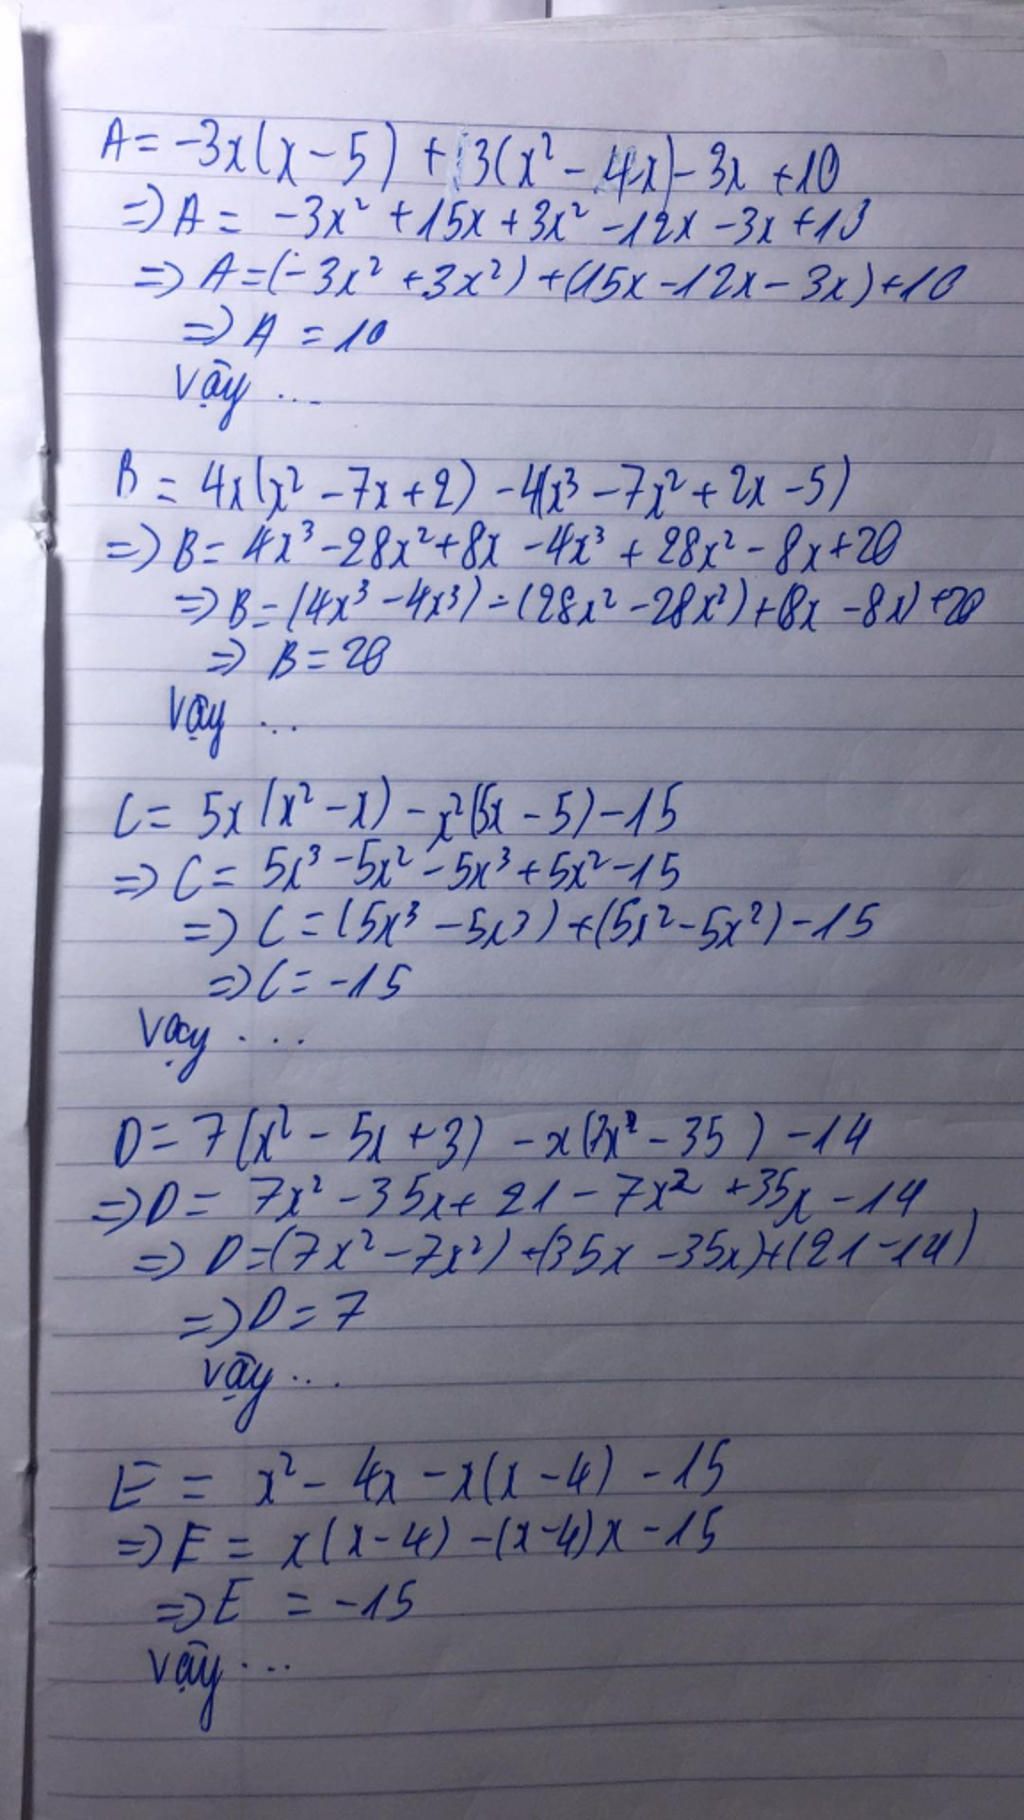 A = -3x(x - 5) + 3(x² - 4x) - 3x + 10
=> A = -3x² + 15x + 3x² - 12x - 3x + 10
=> A = (-3x² + 3x²) + (15x - 12x - 3x) + 10
=> A = 10
Vậy ...
B = 4x(x² - 7x + 2) - 4(x³ - 7x² + 2x - 5)
=> B = 4x³ - 28x² + 8x - 4x³ + 28x² - 8x + 20
=> B = (4x³ - 4x³) - (28x² - 28x²) + (8x - 8x) + 20
=> B = 20
Vậy ...
C = 5x(x² - x) - x²(5x - 5) - 15
=> C = 5x³ - 5x² - 5x³ + 5x² - 15
=> C = (5x³ - 5x³) + (5x² - 5x²) - 15
=> C = -15
Vạy ...
D = 7(x² - 5x + 3) - x(7x - 35) - 14
=> D = 7x² - 35x + 21 - 7x² + 35x - 14
=> D = (7x² - 7x²) + (35x - 35x) + (21 - 14)
=> D = 7
Vậy ...
E = x² - 4x - x(x - 4) - 15
=> E = x(x - 4) - (x - 4)x - 15
=> E = -15
Vậy ...